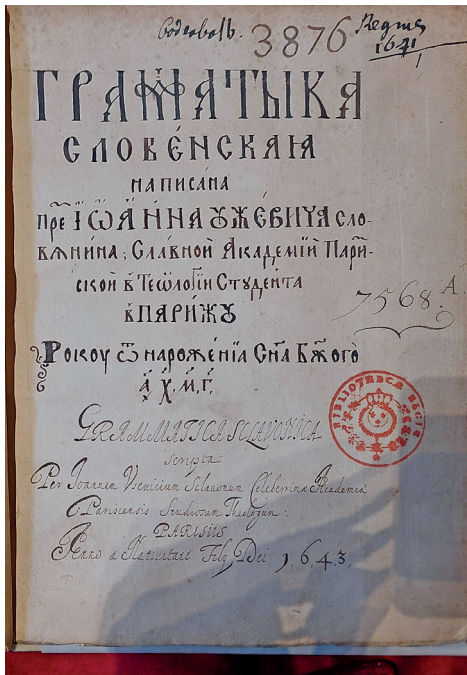 3876
1641
ГРАММАТЫКА
СЛОВЕ́НСКАꙖ
написана
пре᷆ Іѡа́нна Ꙋже́вича Сло-
вѧни́на; Сла́вной Академі́й Пари-
ской в Теѡло́гїи Студе́нта
в Пари́жꙋ
Рокоу ѿ нароже́нїа Сн҃а Бж҃ого
а҂ х м г
7568.A.
BIBLIOTHECÆ REGIÆ
GRAMMATICA SCLAVONICA
scripta
Per Joannem Usevicium Sclavonum Celeberrimæ Academiæ
Parisiensis Studiosum Theologum:
PARISIIS
Anno a Nativitate Filij Dei 1.6.4.3.